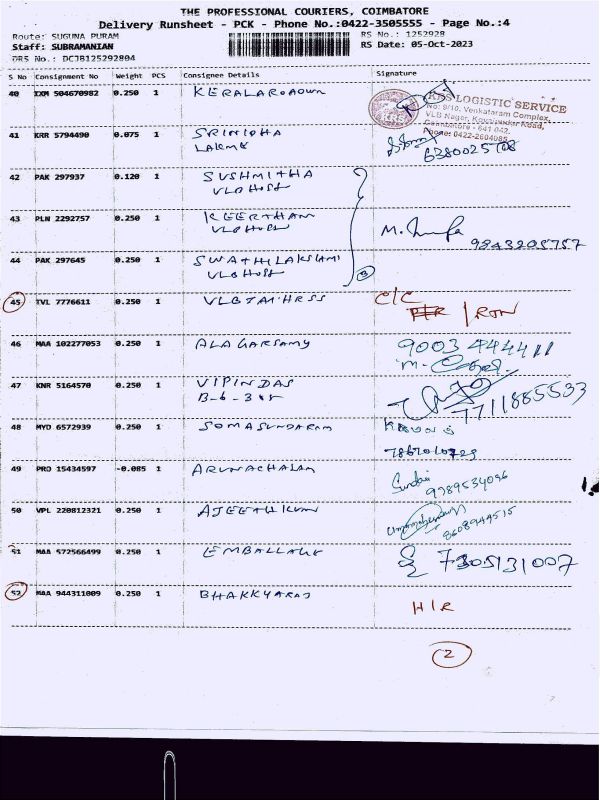 THE PROFESSIONAL COURIERS, COIMBATORE
Delivery Runsheet - PCK - Phone No.:0422-3505555 - Page No.:4
Route: SUGUNA PURAM RS No.: 1252928
Staff: SUBRAMANIAN RS Date: 05-Oct-2023
DRS No.: DCJB125292804
S No Consignment No Weight PCS Consignee Details Signature
40 IXM 504670982 0.250 1 KERALAROADWN
KRS LOGISTIC SERVICE
No: 9/10, Venkataram Complex,
VLB Nagar, Kovaipudur Road,
Coimbatore - 641 042.
Phone: 0422-2604085
KRS
41 KRR 5794490 0.075 1 SRINIDHA
LAKME
6380025708
42 PAK 297937 0.120 1 SUSHMITHA
VLB Host
43 PLN 2292757 0.250 1 KEERTHAN
VLB Host
M.
9843205757
44 PAK 297645 0.250 1 SWATHILAKSHMI
VLB Host
3
45 TVL 7776611 0.250 1 VLBTAIHRSS C/C
/ RTN
46 MAA 102277053 0.250 1 ALAGARSAMY 9003444411
47 KNR 5164570 0.250 1 VIPINDAS
7711885533
48 MYD 6572939 0.250 1 SOMASUNDARAM
49 PRO 15434597 -0.085 1 ARUNACHALAM
9789534096
50 VPL 220812321 0.250 1 AJEETHKUM
8608944515
51 MAA 572566499 0.250 1 EMBALLAGE 7305131007
52 MAA 944311009 0.250 1 BHAKKYARAJ H/R
2